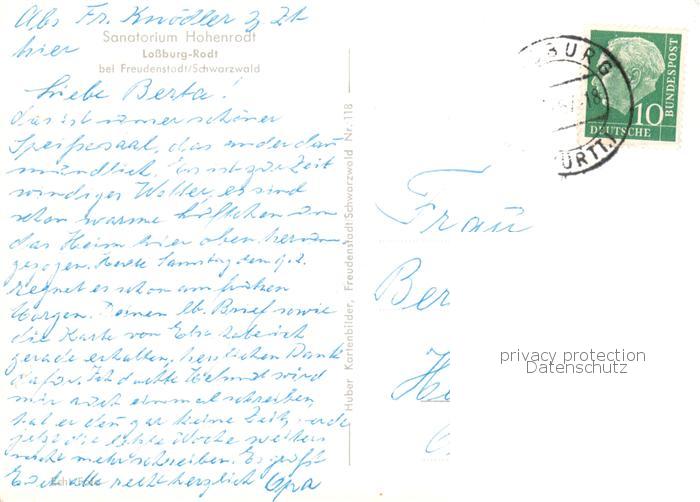 Abs. Fr. Knödler z. Zt.
hier
Sanatorium Hohenrodt
Loßburg-Rodt
bei Freudenstadt/Schwarzwald
Liebe Berta!
das ist unser schöner
Speisesaal, das andere dann
mündlich. Es ist zur Zeit
windiges Wetter, es sind
schon warme Lüftchen um
das Heim hier oben herum
gezogen. Heute Samstag den 9.2.
regnet es schon am frühen
Morgen. Deinen lb. Brief sowie
die Karte von Elsa habe ich
gerade erhalten, herzlichen Dank
dafür. Ich dachte Helmut wird
mir auch einmal schreiben,
hat er den gar keine Zeit, werde
jetzt die letzte Woche weiters
nicht mehr schreiben. Es grüßt
Euch alle recht herzlich Opa
Echte Foto
Huber Kartenbilder, Freudenstadt Schwarzwald Nr. 118
BURG
18
WÜRTT.
10
DEUTSCHE
BUNDESPOST
Frau
Ber
He
privacy protection
Datenschutz